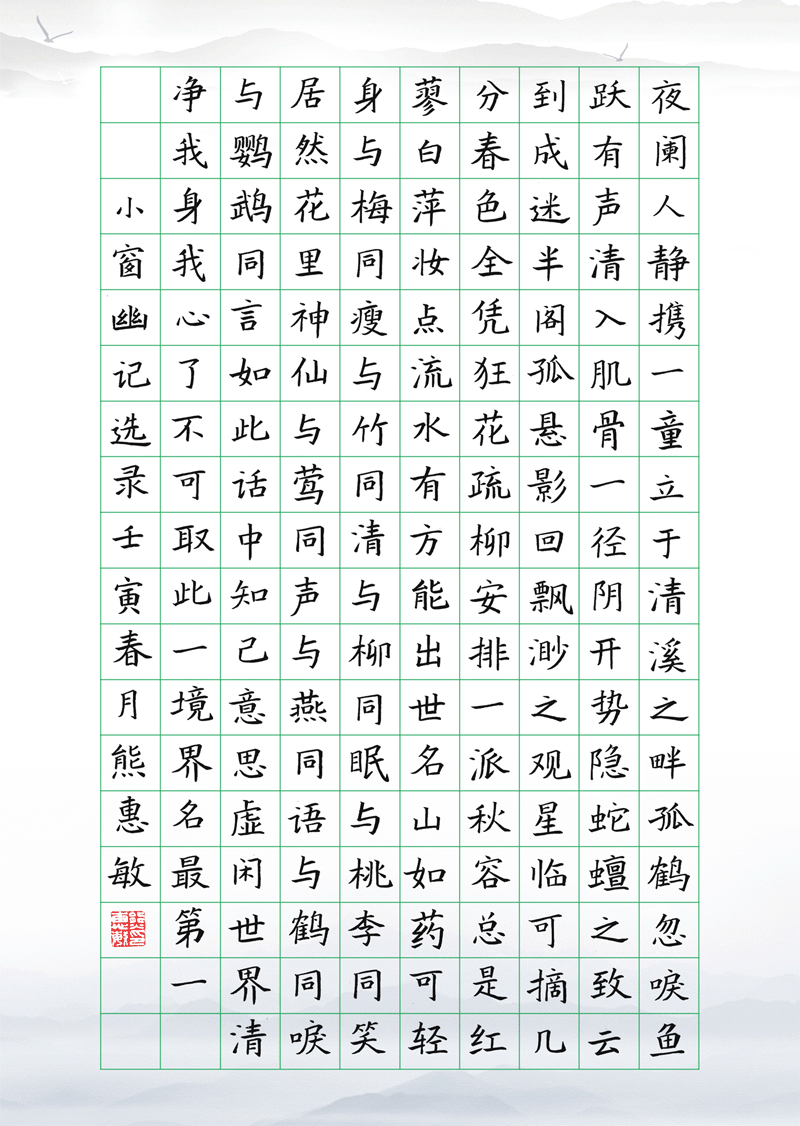 夜阑人静携一童立于清溪之畔孤鹤忽唳鱼
跃有声清入肌骨一径阴开势隐蛇蟺之致云
到成迷半阁孤悬影回飘渺之观星临可摘几
分春色全凭狂花疏柳安排一派秋容总是红
蓼白萍妆点流水有方能出世名山如药可轻
身与梅同瘦与竹同清与柳同眠与桃李同笑
居然花里神仙与莺同声与燕同语与鹤同唳
与鹦鹉同言如此话中知己意思虚闲世界清
净我身我心了不可取此一境界名最第一
小窗幽记选录壬寅春月熊惠敏